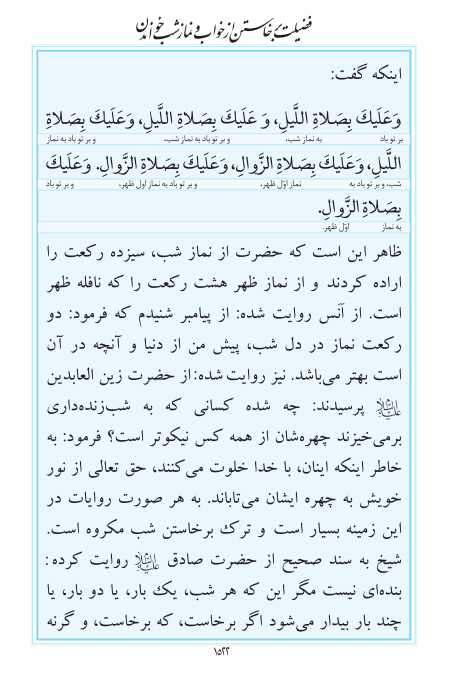 فضیلت برخاستن از خواب و نماز شب خواندن
اینکه گفت:
وَعَلَيكَ بِصَلاةِ اللَّيلِ، وَ عَلَيكَ بِصَلاةِ اللَّيلِ، وَعَلَيكَ بِصَلاةِ
بر تو باد به نماز شب، و بر تو باد به نماز شب، و بر تو باد به نماز
اللَّيلِ، وَعَلَيكَ بِصَلاةِ الزَّوالِ، وَعَلَيكَ بِصَلاةِ الزَّوالِ. وَعَلَيكَ
شب، و بر تو باد به نماز اوّل ظهر، و بر تو باد به نماز اول ظهر، و بر تو باد
بِصَلاةِ الزَّوالِ.
به نماز اوّل ظهر.
ظاهر این است که حضرت از نماز شب، سیزده رکعت را
اراده کردند و از نماز ظهر هشت رکعت را که نافله ظهر
است. از اَنَس روایت شده: از پیامبر شنیدم که فرمود: دو
رکعت نماز در دل شب، پیش من از دنیا و آنچه در آن
است بهتر می‌باشد. نیز روایت شده: از حضرت زین العابدین
علیه السلام پرسیدند: چه شده کسانی که به شب‌زنده‌داری
برمی‌خیزند چهره‌شان از همه کس نیکوتر است؟ فرمود: به
خاطر اینکه اینان، با خدا خلوت می‌کنند، حق تعالی از نور
خویش به چهره ایشان می‌تاباند. به هر صورت روایات در
این زمینه بسیار است و ترك برخاستن شب مکروه است.
شیخ به سند صحیح از حضرت صادق علیه السلام روایت کرده:
بنده‌ای نیست مگر این که هر شب، یك بار، یا دو بار، یا
چند بار بیدار می‌شود اگر برخاست، که برخاست، و گرنه
۱۵۲۲